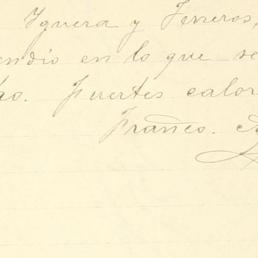 Yguera y Teneros,
endio en lo que se
do. Fuertes calor
Franco. A